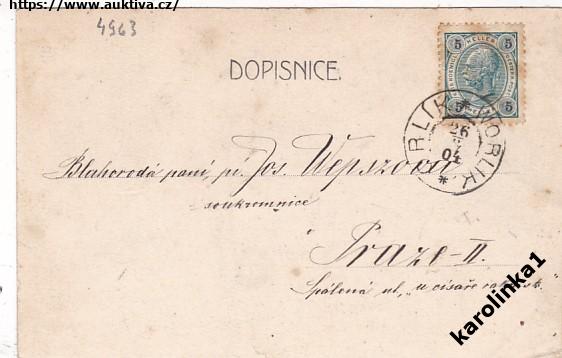 https://www.auktiva.cz/
4963
DOPISNICE.
5 HELLER 5
5 5
ORLIK * WORLIK *
26
04
Blahorodá paní, pí. Jos. Wepszová
soukromnice
Praze-II.
Spálená ul. „u císaře
karolinka1